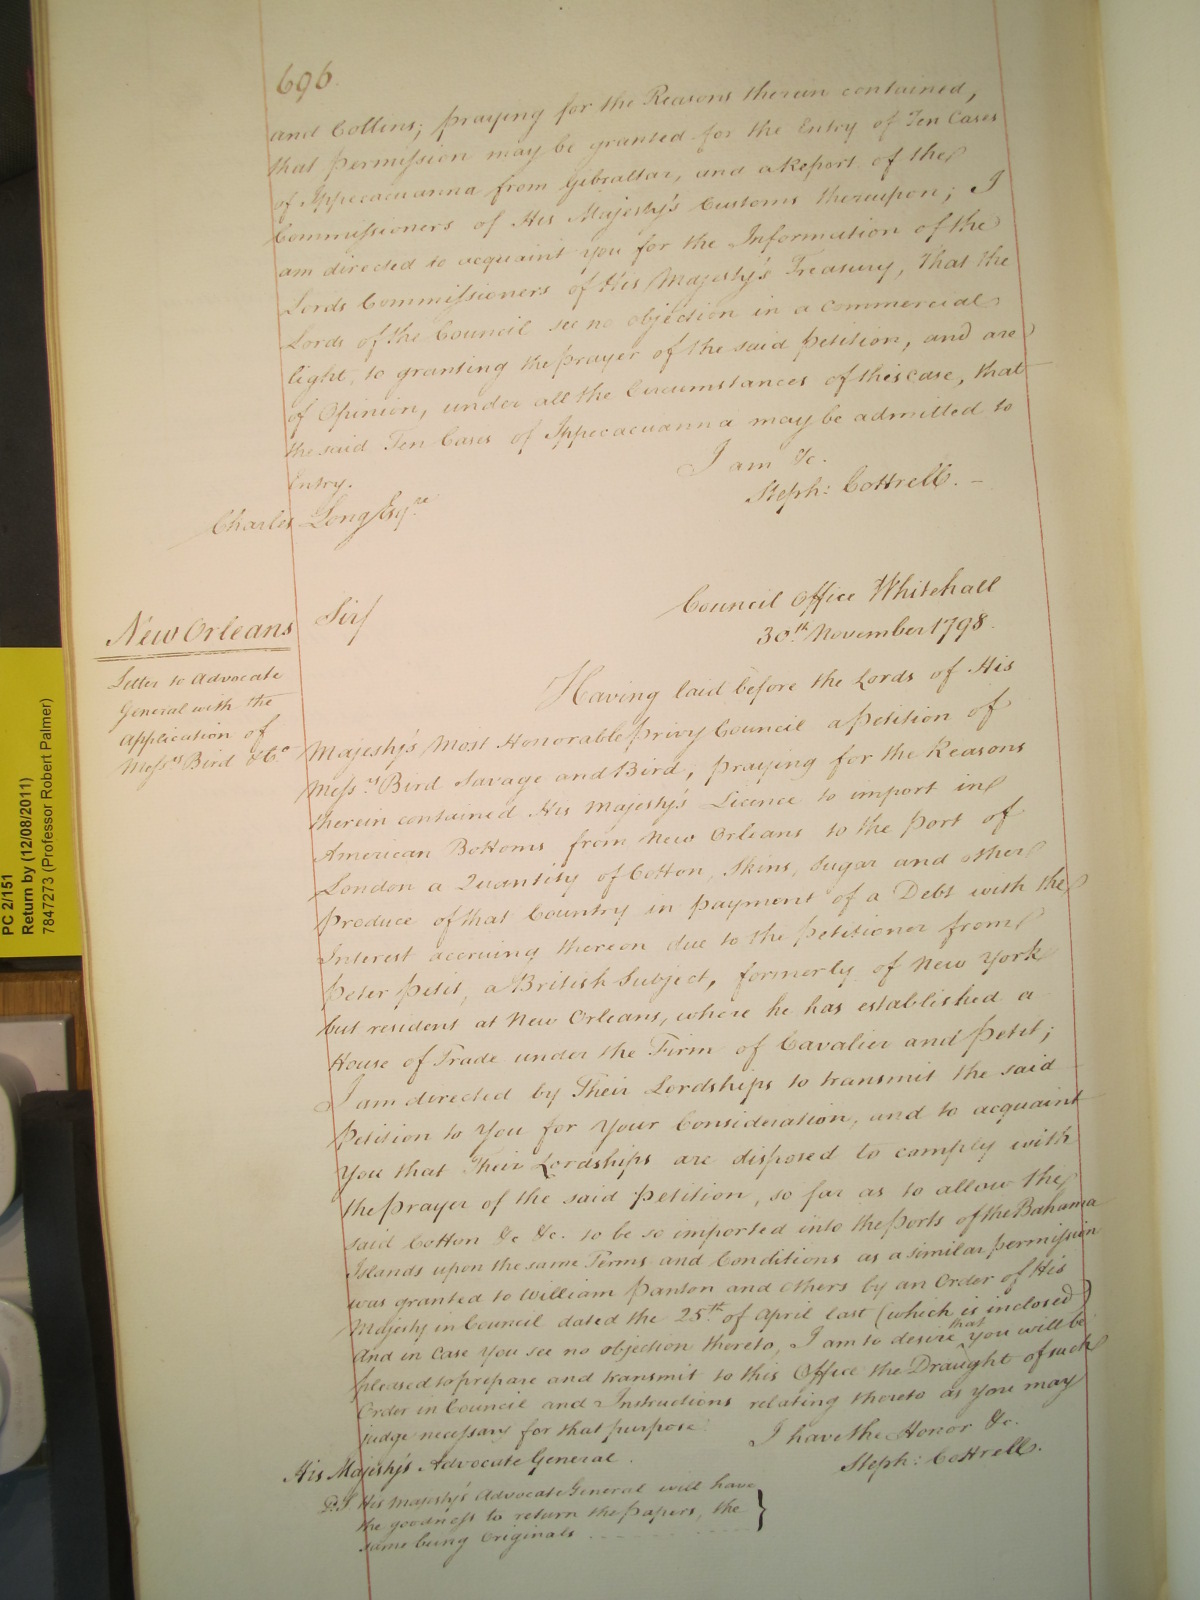 696.
and Collins; praying for the Reasons therein contained,
that permission may be granted for the Entry of Ten Cases
of Ippecacuanna from Gibraltar, and a Report of the
Commissioners of His Majesty's Customs thereupon; I
am directed to acquaint you for the Information of the
Lords Commissioners of His Majesty's Treasury, that the
Lords of the Council see no objection in a commercial
light, to granting the prayer of the said Petition, and are
of Opinion, under all the Circumstances of this case, that
the said Ten Cases of Ippecacuanna may be admitted to
Entry.
I am &c.
Steph: Cottrell. –
Charles Long Esqre
New Orleans
Letter to Advocate
General with the
Application of
Messrs Bird & Co
Sir/
Council Office Whitehall
30th November 1798.
Having laid before the Lords of His
Majesty's Most Honorable Privy Council a Petition of
Messrs Bird Savage and Bird, praying for the Reasons
therein contained His Majesty's Licence to import in
American Bottoms from New Orleans to the Port of
London a Quantity of Cotton, Skins, Sugar and other
Produce of that Country in payment of a Debt with the
Interest accruing thereon due to the Petitioner from
Peter Petit, a British Subject, formerly of New York
but resident at New Orleans, where he has established a
House of Trade under the Firm of Cavalier and Petit;
I am directed by Their Lordships to transmit the said
Petition to You for Your Consideration, and to acquaint
You that Their Lordships are disposed to comply with
the prayer of the said Petition, so far as to allow the
said Cotton &c &c. to be so imported into the Ports of the Bahama
Islands upon the same Terms and Conditions as a similar permission
was granted to William Panton and Others by an Order of His
Majesty in Council dated the 25th of April last (which is inclosed)
And in case you see no objection thereto, I am to desire that you will be
pleased to prepare and transmit to this Office the Draught of such
Order in Council and Instructions relating thereto as you may
judge necessary for that purpose.
I have the Honor &c.
Steph: Cottrell.
His Majesty's Advocate General.
P.S His Majesty's Advocate General will have
the goodness to return the Papers, the
same being Originals
PC 2/151
Return by (12/08/2011)
7847273 (Professor Robert Palmer)